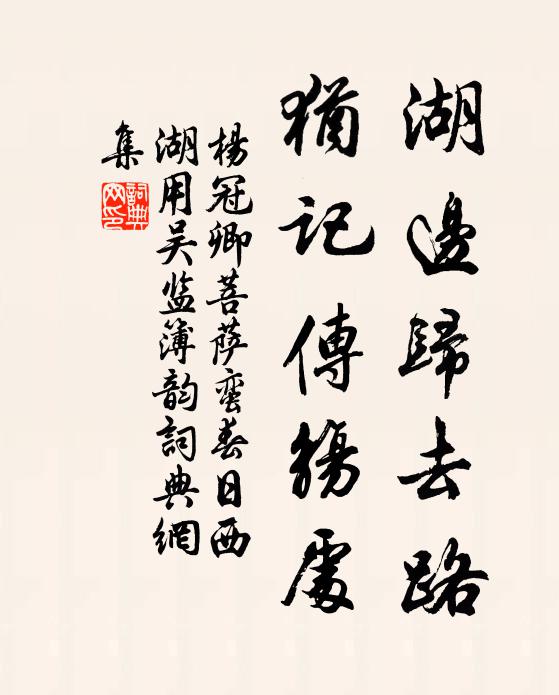 湖邊歸去路
猶記傳觴處
楊冠卿菩薩蛮春日西
湖用吴监簿韵詞典網
集
詞典网印